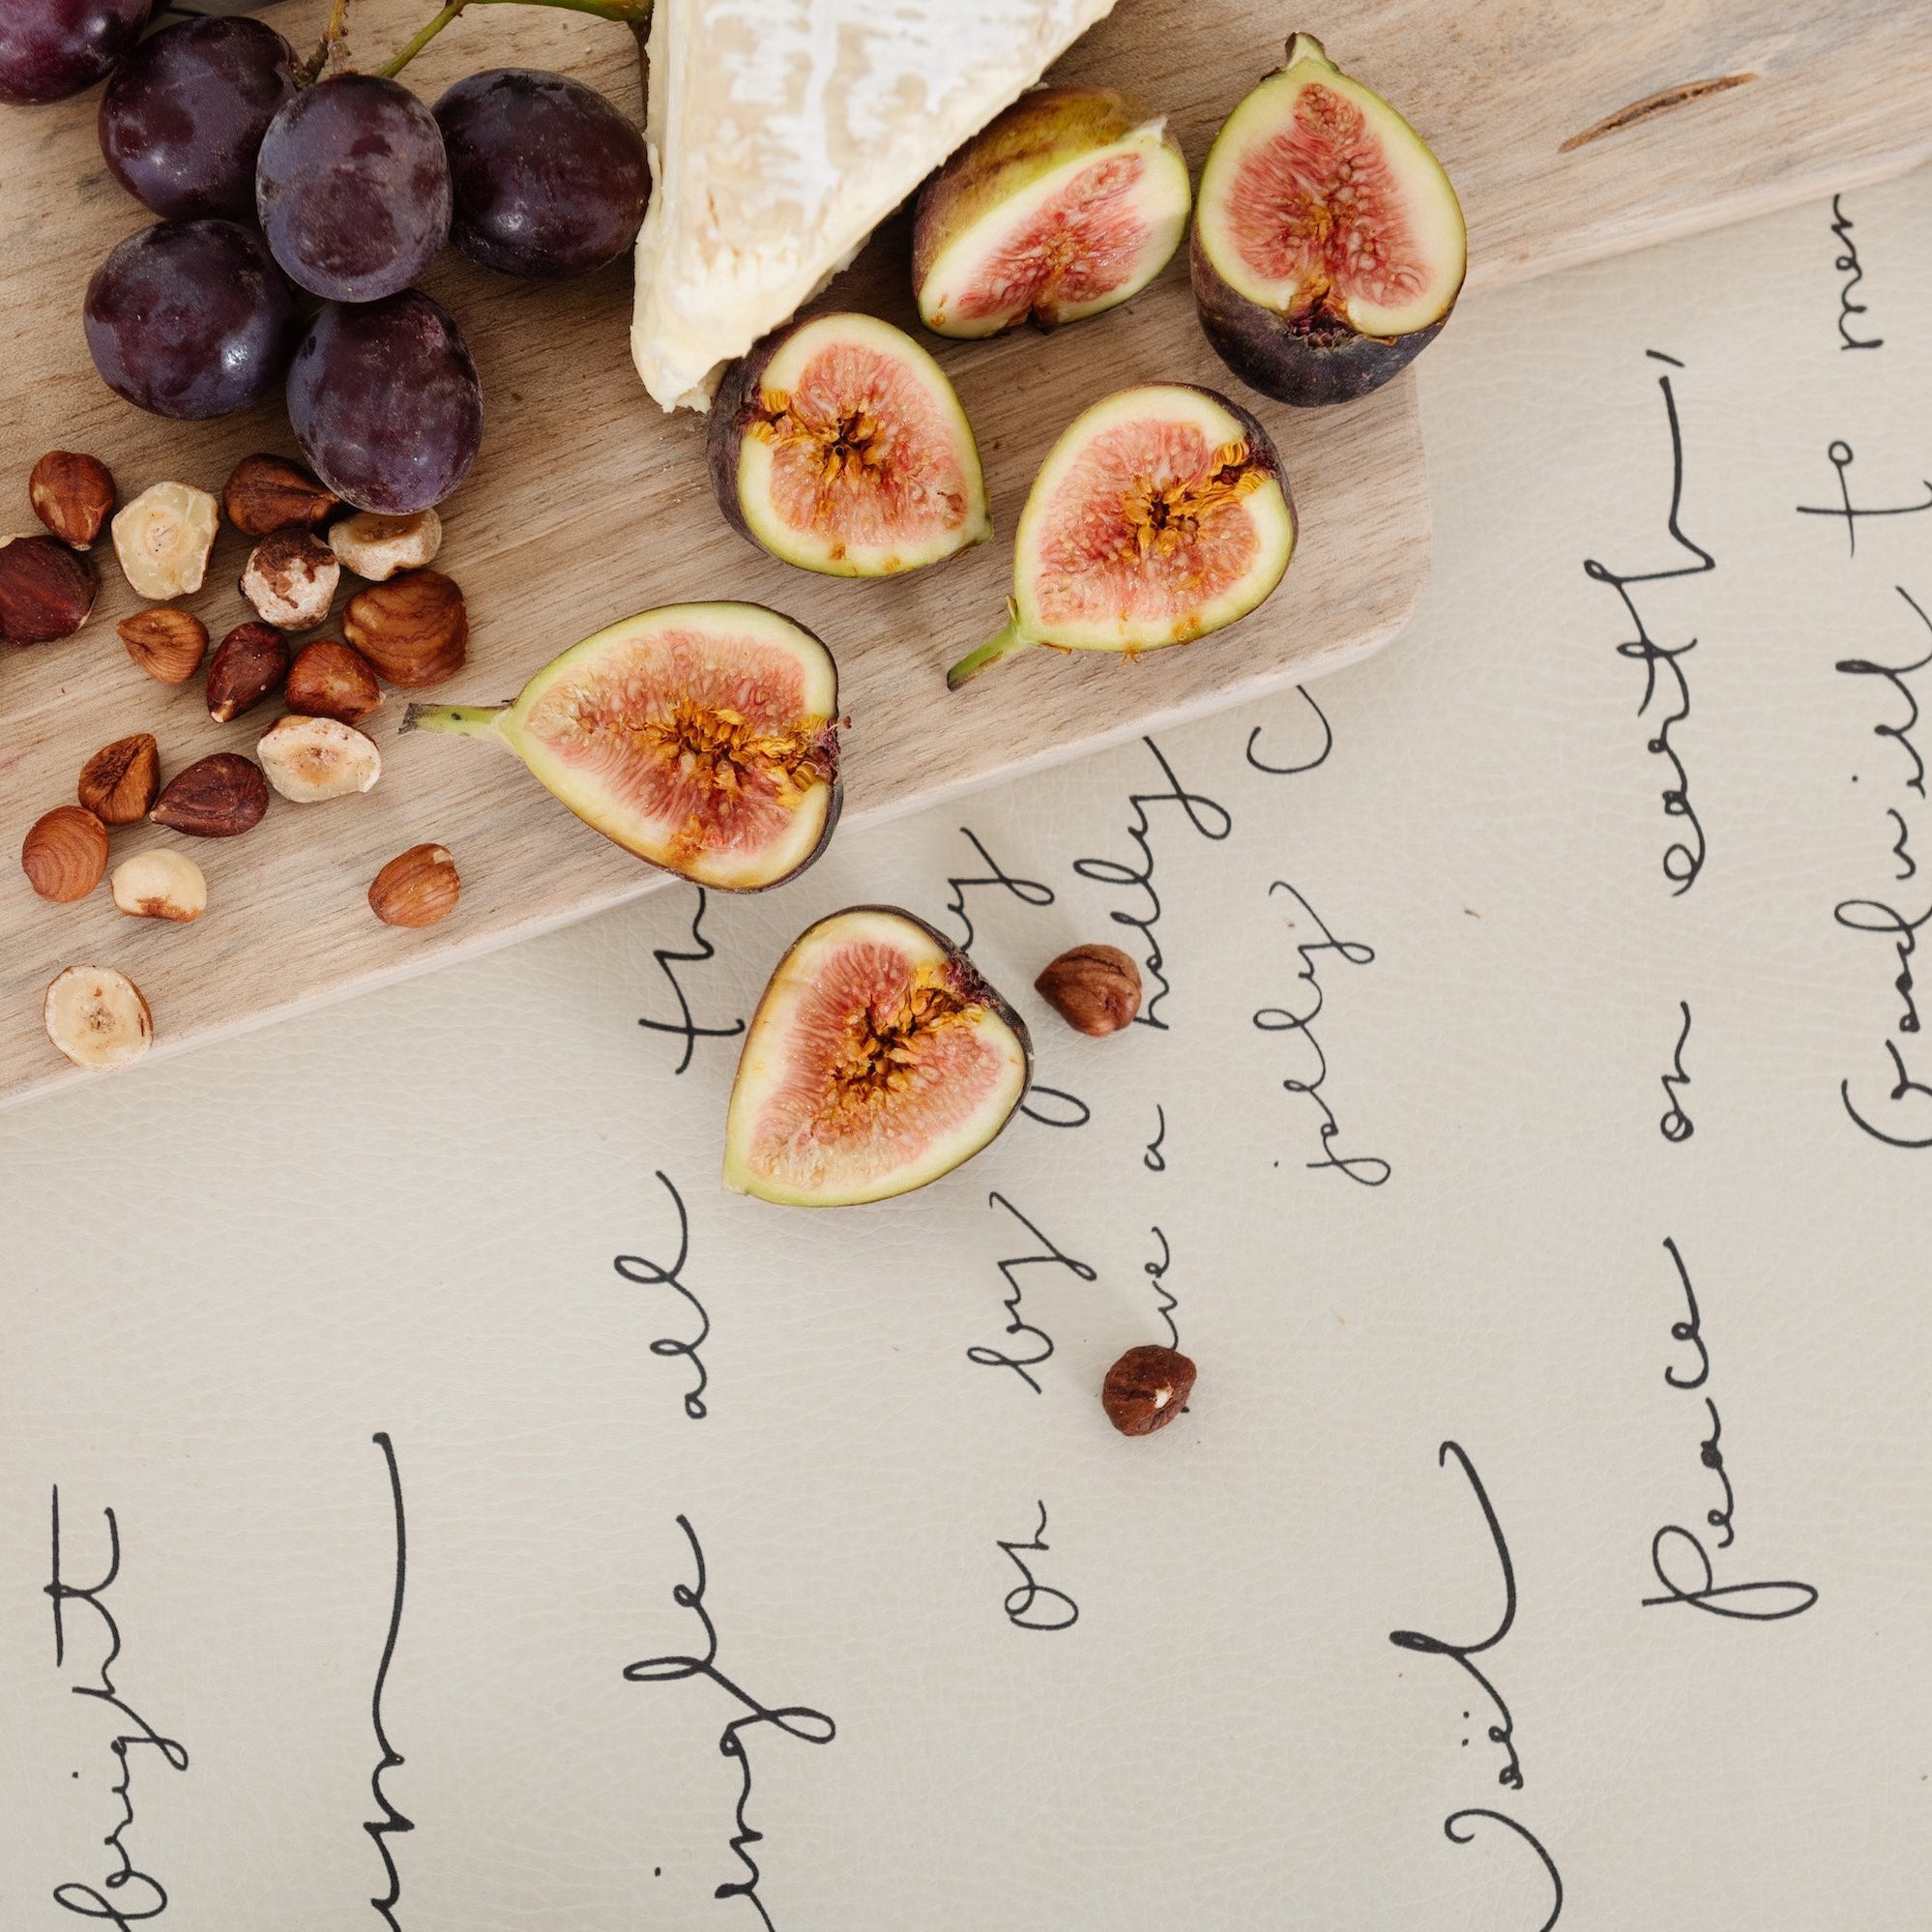 bright
ingle all th
Oh by
a holly
jolly C
Noël
Peace on earth,
Goodwill to men